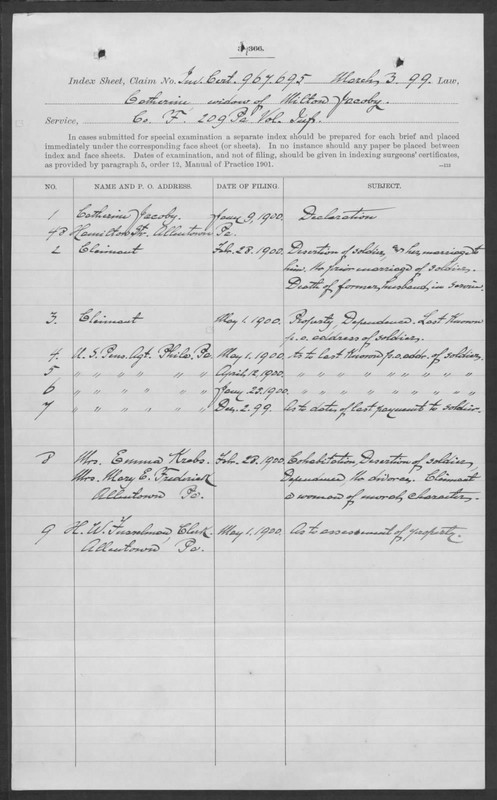 3-366.
Index Sheet, Claim No. Inv. Cert. 967.695 March 3. 99. Law,
Catherine widow of Milton Jacoby.
Service, Co. F. 209 Pa Vol. Inf.
In cases submitted for special examination a separate index should be prepared for each brief and placed
immediately under the corresponding face sheet (or sheets). In no instance should any paper be placed between
index and face sheets. Dates of examination, and not of filing, should be given in indexing surgeons' certificates,
as provided by paragraph 5, order 12, Manual of Practice 1901.
NO. NAME AND P. O. ADDRESS. DATE OF FILING. SUBJECT.
1 Catherine Jacoby. Jany 9, 1900. Declaration
43 Hamilton St. Allentown Pa.
2 Claimant Feb. 28. 1900. Desertion of soldier, & her marriage to
him. No prior marriage of soldier.
Death of former husband, in service.
3. Claimant May 1. 1900. Property, Dependence. Last Known
p.o. address of soldier.
4. U. S. Pens. Agt. Phila. Pa. May 1. 1900. As to last known p.o. addr. of soldier.
5 " " " " " April 12, 1900. " " " " " " " "
6 " " " " " Jany 22. 1900. " " " " " " " "
7 " " " " " Dec. 2. 99. As to dates of last payment to soldier.
8 Mrs. Emma Krebs. Feb. 28. 1900. Cohabitation, Desertion of soldier,
Mrs. Mary E. Frederick Dependence, No divorce. Claimant
Allentown Pa. a woman of moral character.
9 H. W. Clerk. May 1. 1900. As to assessment of property.
Allentown Pa.